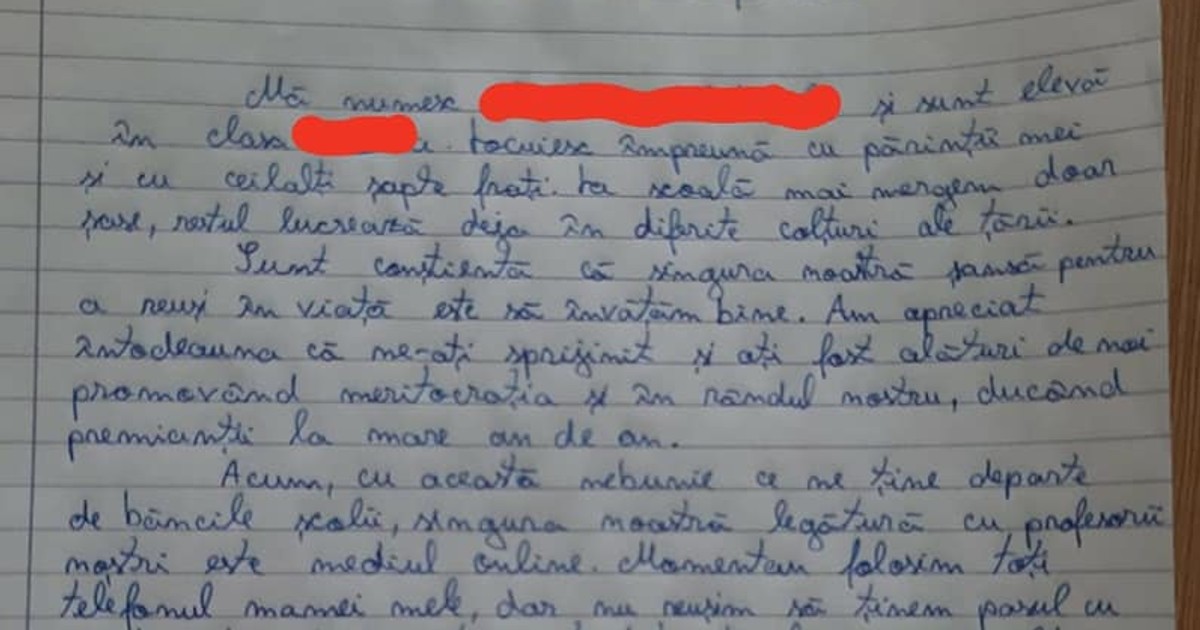 Mă numesc și sunt elevă
în clasa a. Locuiesc împreună cu părinții mei
și cu ceilalți șapte frați. La școală mai mergem doar
șase, restul lucrează deja în diferite colțuri ale țării.
Sunt conștientă că singura noastră șansă pentru
a reuși în viață este să învățăm bine. Am apreciat
întodeauna că ne-ați sprijinit și ați fost alături de noi
promovând meritocrația și în rândul nostru, ducând
premianții la mare an de an.
Acum, cu această nebunie ce ne ține departe
de băncile școlii, singura noastră legătură cu profesorii
noștri este mediul online. Momentan folosim toți
telefonul mamei mele, dar nu reușim să ținem pasul cu